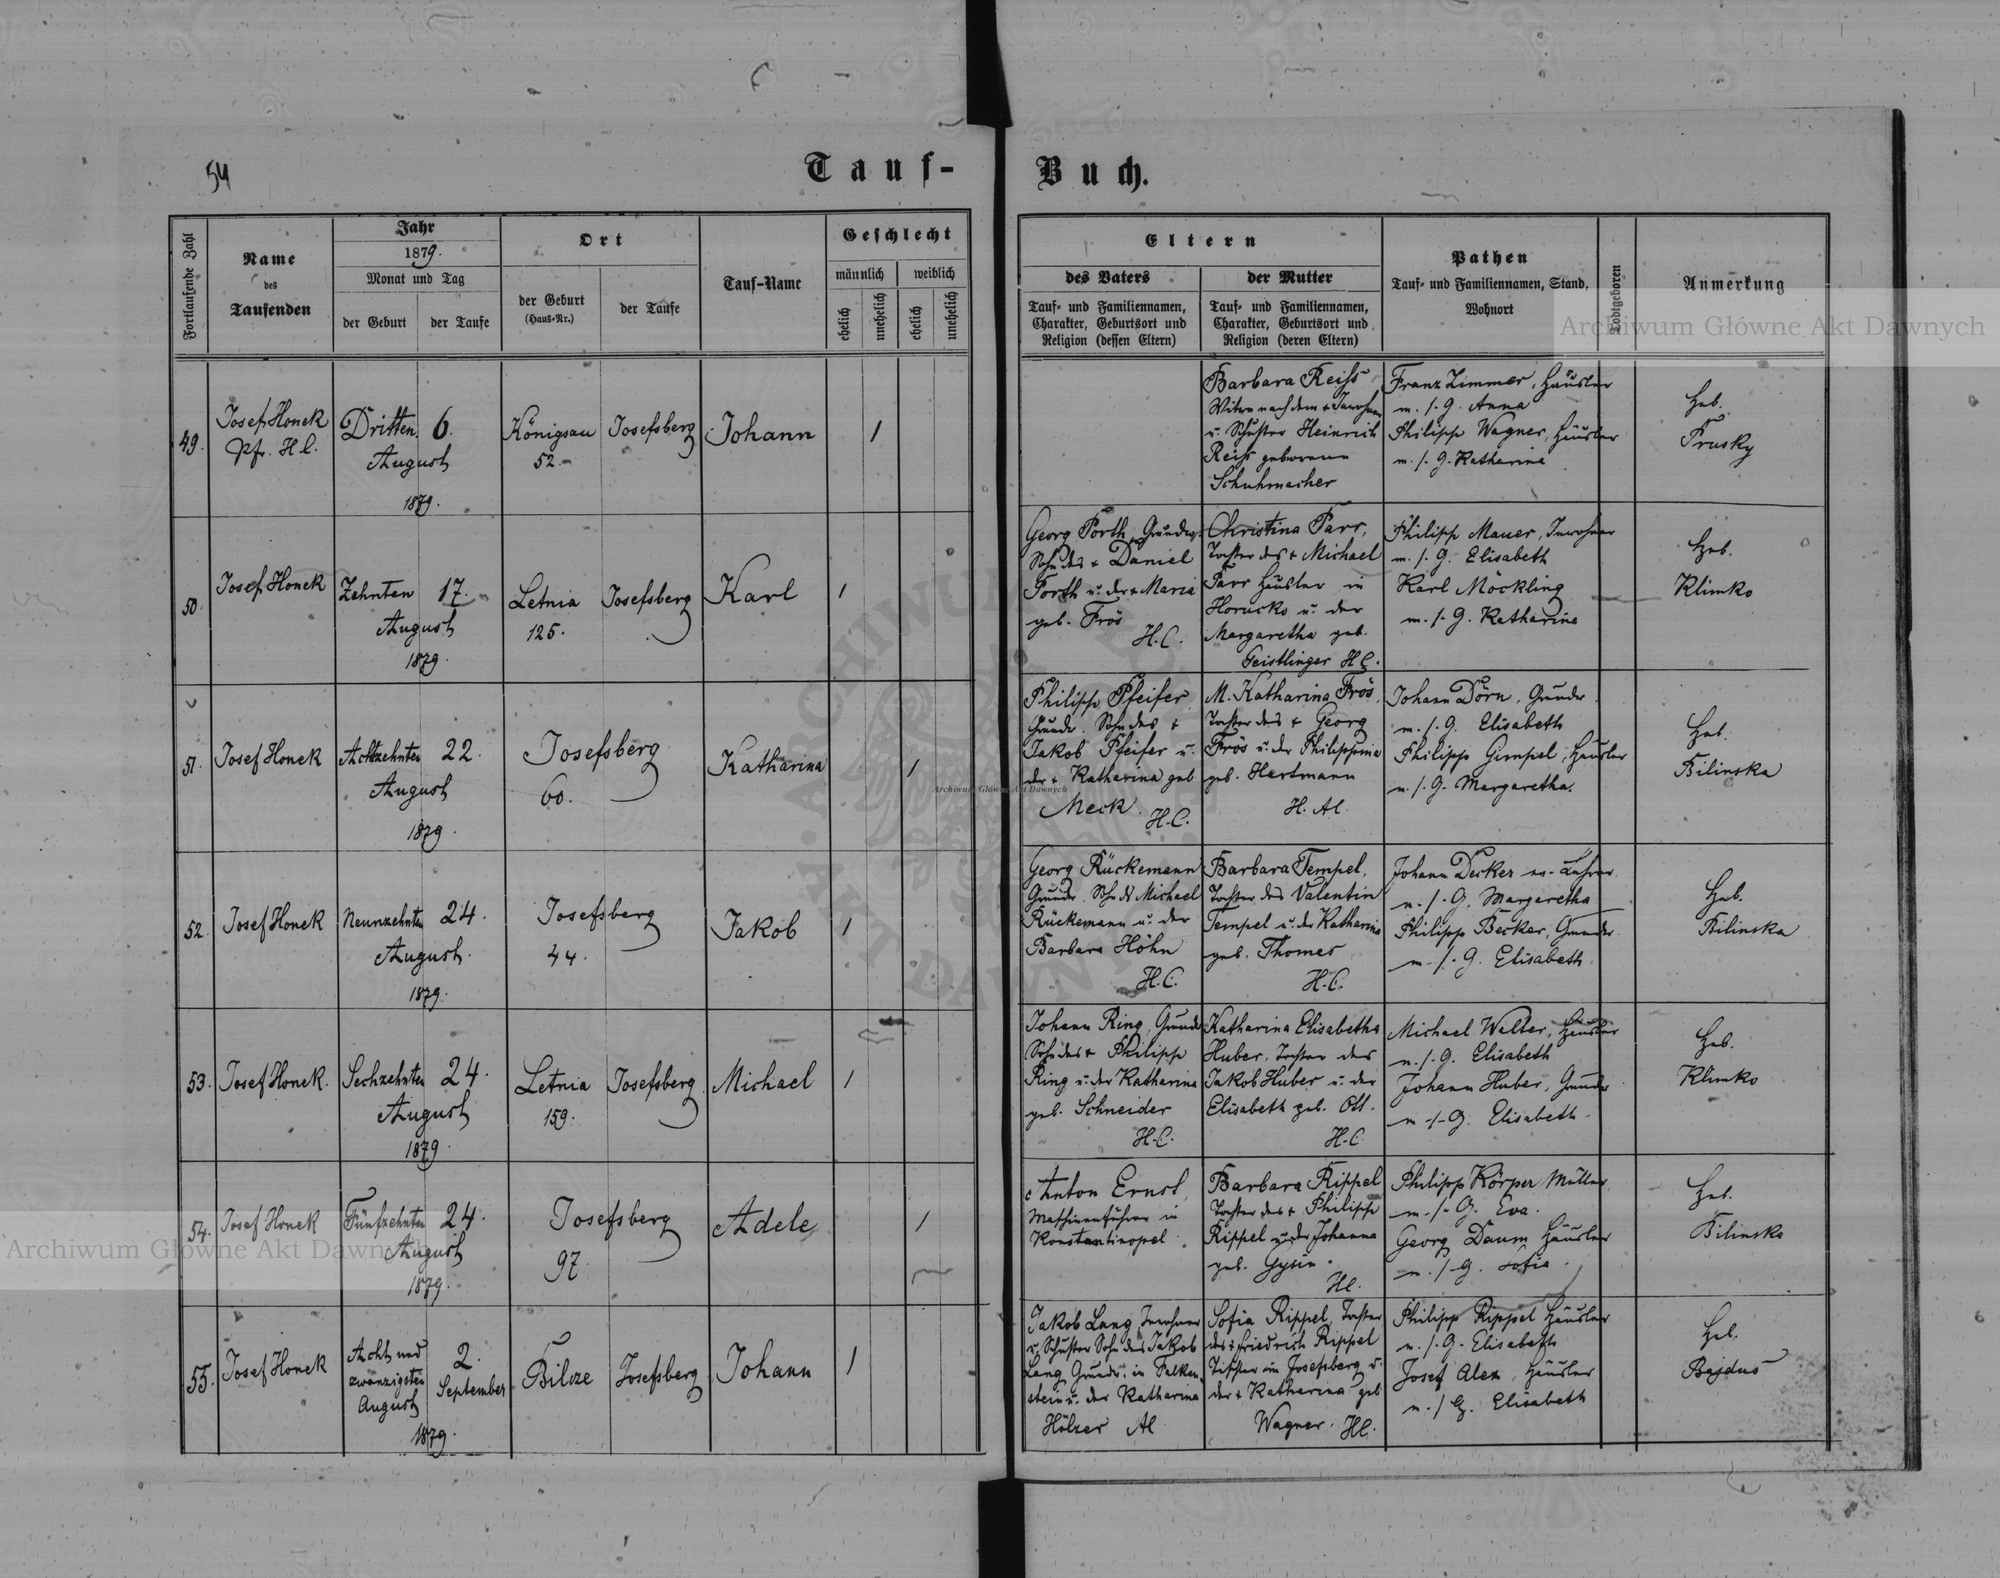 54
Tauf-Buch.
Fortlaufende Zahl
Name
des
Taufenden
Jahr
1879.
Monat und Tag
der Geburt
der Taufe
Ort
der Geburt
(Haus-Nr.)
der Taufe
Tauf-Name
Geschlecht
männlich
weiblich
ehelich
unehelich
ehelich
unehelich
Eltern
des Vaters
Tauf- und Familiennamen,
Charakter, Geburtsort und
Religion (dessen Eltern)
der Mutter
Tauf- und Familiennamen,
Charakter, Geburtsort und
Religion (deren Eltern)
Pathen
Tauf- und Familiennamen, Stand,
Wohnort
Todtgeboren
Anmerkung
Archiwum Główne Akt Dawnych
49.
Josef Honek
Pfr. H.C.
Dritten
August
1879.
6.
Königsau
52.
Josefsberg
Johann
1
Barbara Reiss
Witwe nach dem +
u. Schuster Heinrich
Reiss geborene
Schuhmacher
Franz Zimmer, Häusler
m. s. G. Anna
Philipp Wagner, Häusler
m. s. G. Katharina
Heb.
Prusky
50.
Josef Honek
Zehnten
August
1879.
17.
Letnia
125.
Josefsberg
Karl
1
Georg Porth,
Sohn des + Daniel
Porth u. der + Maria
geb. Frös
H.C.
Christina Parr,
Tochter des + Michael
Parr Häusler in
Horucko u. der
Margaretha geb.
Geistlinger H.C.
Philipp Mauer, Inwohner
m. s. G. Elisabeth
Karl Möckling
m. s. G. Katharina
Heb.
Klimko
51.
Josef Honek
Achtzehnten
August
1879.
22.
Josefsberg
60.
Katharina
1
Philipp Pfeifer,
Grundr. Sohn des +
Jakob Pfeifer u.
der + Katharina geb
Meck.
H.C.
M. Katharina Frös,
Tochter des + Georg
Frös u. der Philippina
geb. Hartmann
H. Al.
Johann Dörn, Grundr.
m. s. G. Elisabeth
Philipp Gimpel, Häusler
m. s. G. Margaretha.
Heb.
Bilinska
52.
Josef Honek
Neunzehnten
August
1879.
24.
Josefsberg
44.
Jakob
1
Georg Rückemann
Grundr. Sohn ds Michael
Rückemann u. der
Barbara Höhn
H.C.
Barbara Tempel,
Tochter des Valentin
Tempel u. der Katharina
geb. Thomas
H.C.
Johann Decker ev. Lehrer
m. s. G. Margaretha
Philipp Becker, Grundr.
m. s. G. Elisabeth
Heb.
Bilinska
53.
Josef Honek.
Sechzehnten
August
1879.
24.
Letnia
159.
Josefsberg
Michael
1
Johann Ring, Grundr
Sohn des + Philipp
Ring u. der Katharina
geb. Schneider
H.C.
Katharina Elisabetha
Huber, Tochter des
Jakob Huber u. der
Elisabeth geb. Ott.
H.C.
Michael Walter, Häusler
m. s. G. Elisabeth
Johann Huber, Grundr
m. s. G. Elisabeth.
Heb.
Klimko
54.
Josef Honek
Fünfzehnten
August
1879.
24.
Josefsberg
97.
Adele
1
Anton Ernst,
Maschienführer in
Konstantinopel
Barbara Rippel
Tochter des + Philipp
Rippel u. der Johanna
geb. Gysin.
H.C.
Philipp Körper Müller
m. s. G. Eva.
Georg Daum Häusler
m. s. G. Sofia.
Heb.
Bilinska
Archiwum Główne Akt Dawnych
55.
Josef Honek
Acht und
zwanzigsten
August
1879.
2.
September
Bilcze
Josefsberg
Johann
1
Jakob Lang, Inwohner
u. Schuster Sohn des Jakob
Lang Grundr. in Falken
stein u. der Katharina
Hölzer Al
Sofia Rippel, Tochter
des + Friedrich Rippel
Tischler in Josefsberg u.
der + Katharina geb
Wagner. H.C.
Philipp Rippel Häusler
m. s. G. Elisabeth
Josef Alex, Häusler
m. s. G. Elisabeth
Heb.
Bajdus